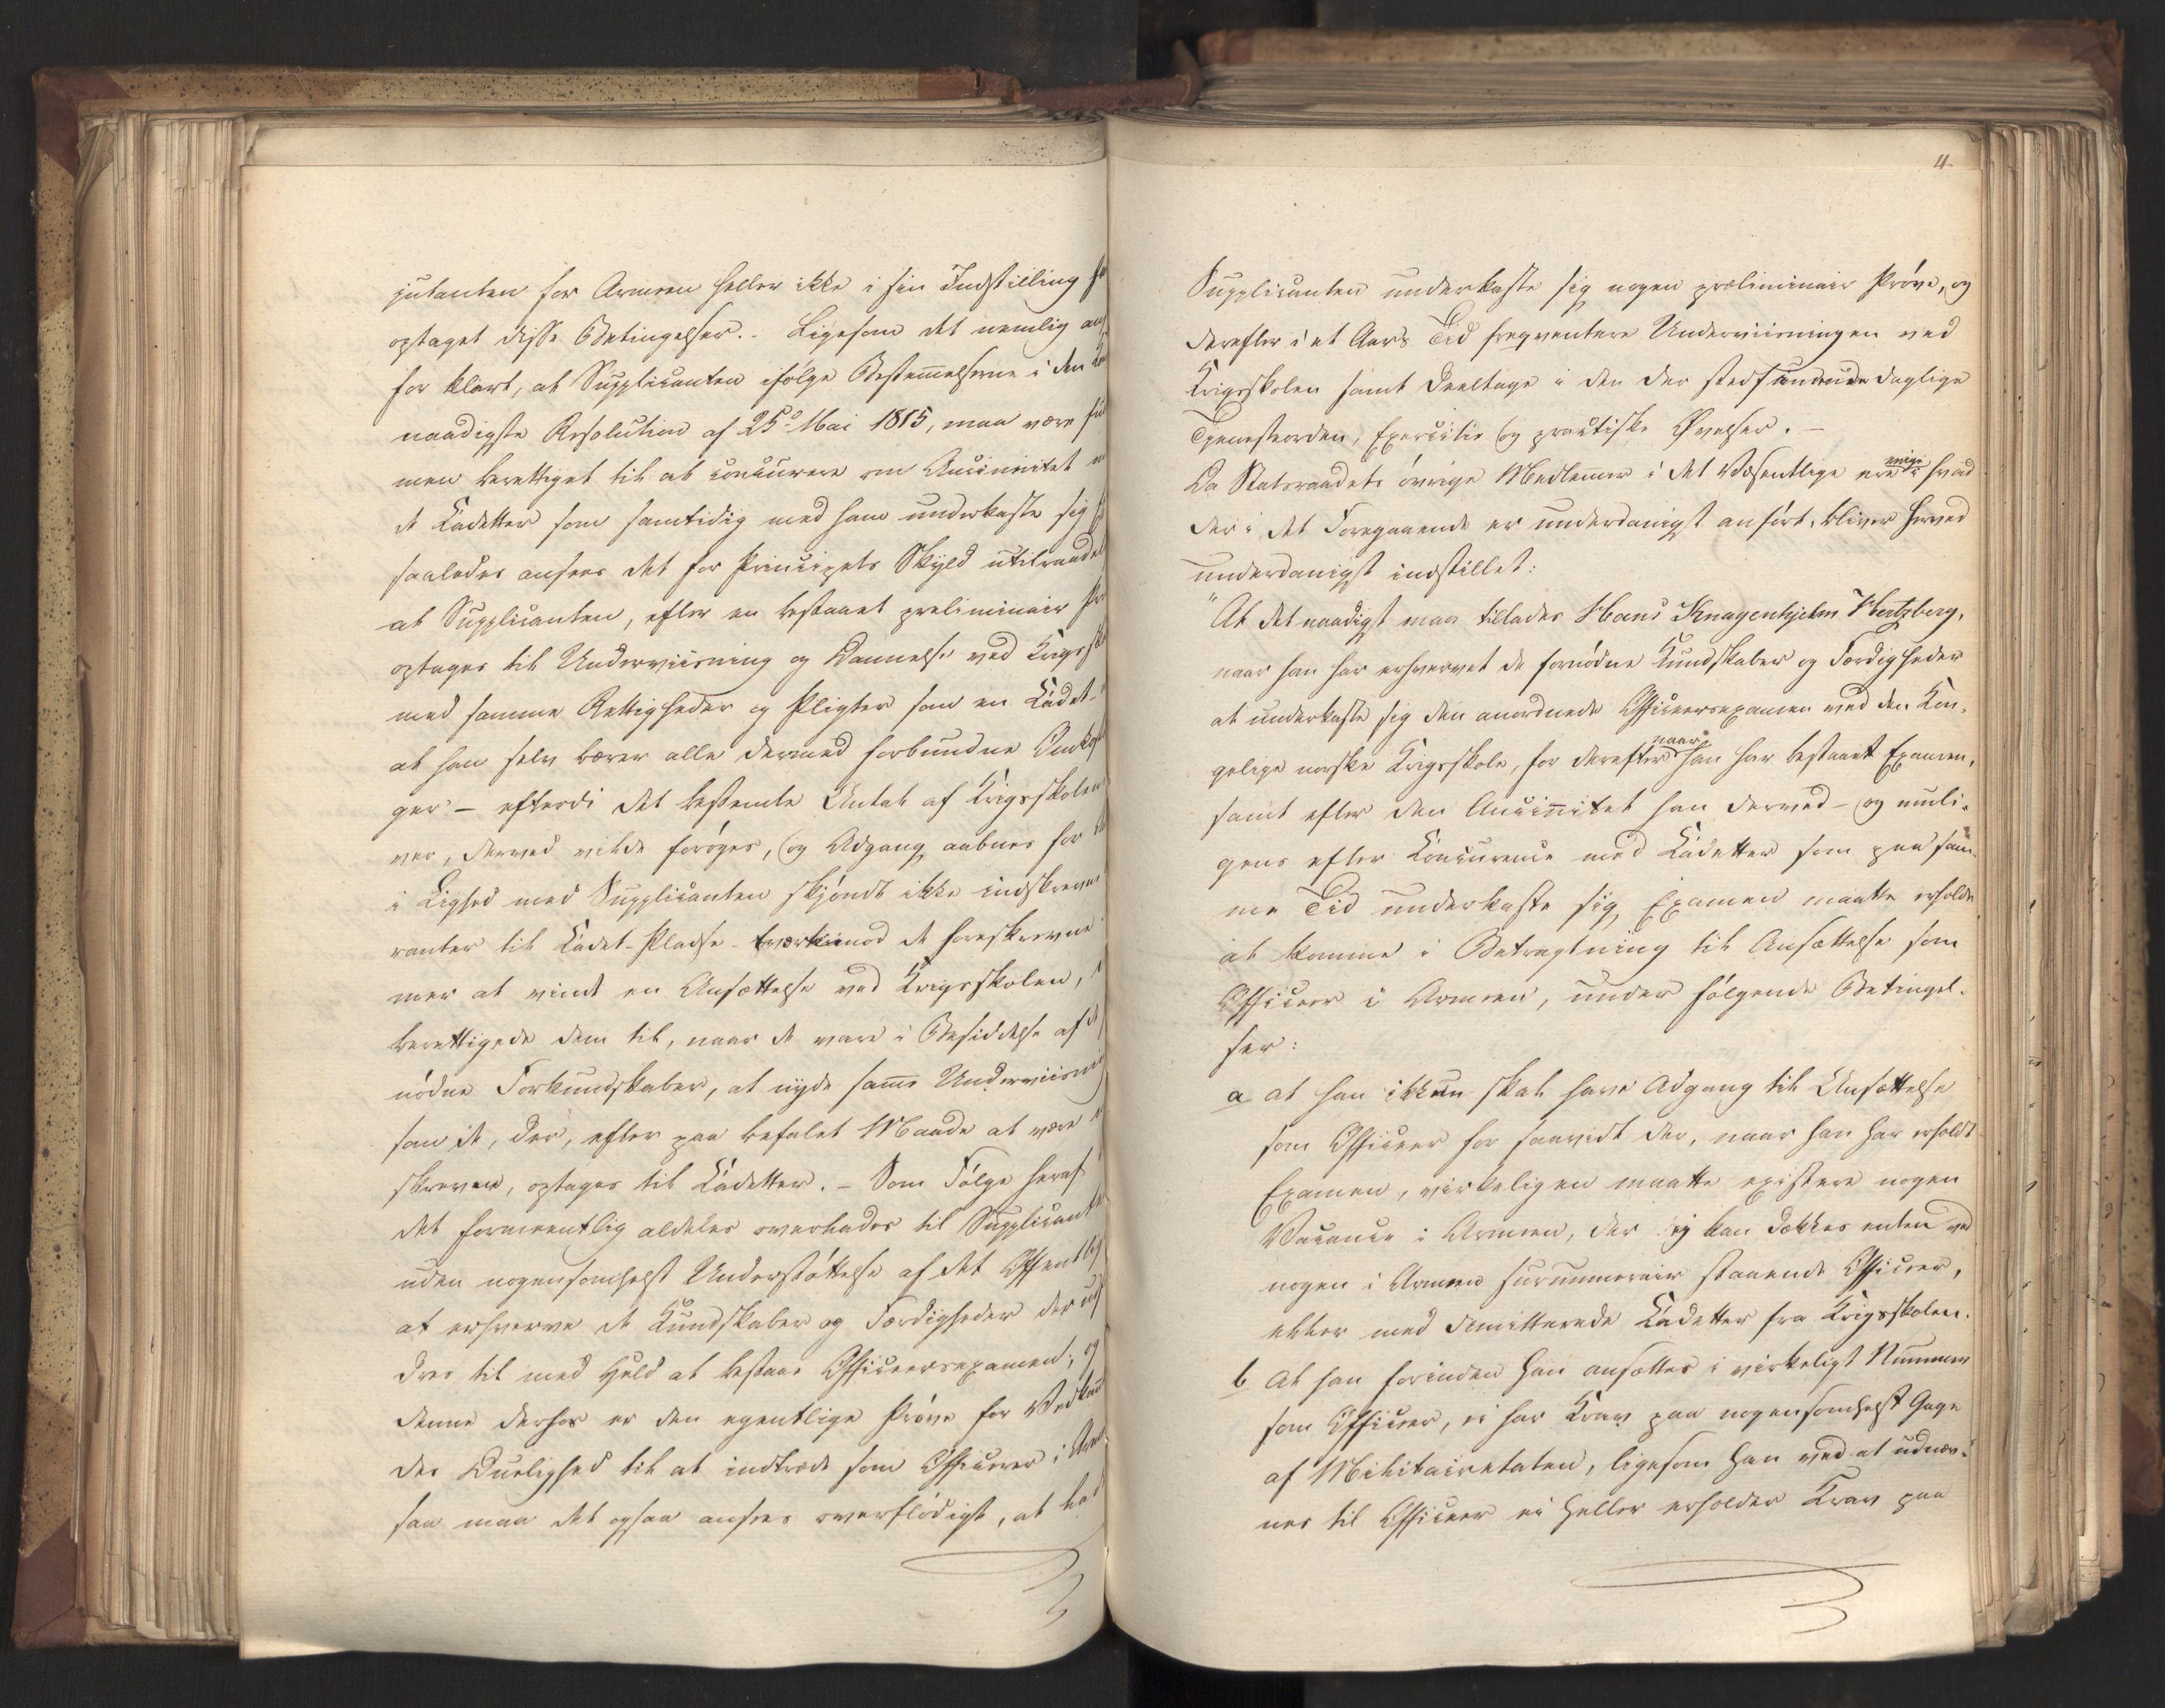 jutanten for Armeen heller ikke i sin Indstilling
optaget disse Betingelser. Ligesom det nemlig an
for klart, at Supplicanten ifølge Bestemmelserne i den
naadigste Resolution af 25de Mai 1815, maa være
men berettiget til at concurere om Anciennitet
de Cadetter som samtidig med ham underkaste sig
saaledes ansees det for Principets Skyld utilraade
at Supplicanten, efter en bestaaet preliminair
optages til Underviisning og Dannelse ved Krigssko
med samme Rettigheder og Pligter som en Cadet
at han selv bærer alle dermed forbundne Omkost
ger – efterdi det bestemte Antal af Krigsskolens
ver, derved vilde forøges, og Adgang aabnes for
i Lighed med Supplicanten skjøndt ikke indskrevne
ranter til Cadet-Pladse tvertimod de foreskrevne
mer at vinde en Ansættelse ved Krigsskolen,
berettigede dem til, naar de vare i Besiddelse af
nødne Forkundskaber, at nyde samme Underviisning
som de, der, efter paa befalet Maade at være
skrevne, optages til Cadetter. – Som Følge heraf
det formeentlig aldeles overlades til Supplicanten
uden nogensomhelst Understøttelse af det Offentlige
at erhverve de Kundskaber og Færdigheder der
dres til med Held at bestaae Officeersexamen; og
denne derhos er den egentlige Prøve for Vedkom
des Duelighed til at indtræde som Officerer i
saa maa det ogsaa ansees overflødigt, at lad
4
Supplicanten underkaste sig nogen preliminair Prøve, og
derefter i et Aars Tid freqventere Underviisningen ved
Krigsskolen samt deeltage i den der stedfindende daglige
Tjenesteorden, Exercitie og practiske Øvelser. –
Da Statsraadets øvrige Medlemmer i det Væsentlige ere enige i hvad
der i det Foregaaende er underdanigst anført, bliver herved
underdanigst indstillet:
"At det naadigst maa tillades Hans Knagenhjelm Hertzberg,
naar han har erhvervet de fornødne Kundskaber og Færdigheder
at underkaste sig den anordnede Officeersexamen ved den Kon-
gelige norske Krigsskole, for derefter naar han har bestaaet Examen,
samt efter den Anciennitet han derved – og muli-
gens efter Concurence med Cadetter som paa sam-
me Tid underkaste sig Examen maatte erholde
at komme i Betragtning til Ansættelse som
Officeer i Armeen, under følgende Betingel-
ser:
a at han ikkun skal have Adgang til Ansættelse
som Officeer for saavidt der, naar han har erholdt
Examen, virkeligen maatte existere nogen
Vacance i Armeen, der ej kan dækkes enten ved
nogen i Armeen surnummerair staaende Officeer,
eller med dimitterede Cadetter fra Krigsskolen.
b At han forinden han ansættes i virkeligt Nummer
som Officeer, ei har Krav paa nogensomhelst Gage
af Militairetaten, ligesom han ved at udnæv-
nes til Officeer ei heller erholder Krav paa